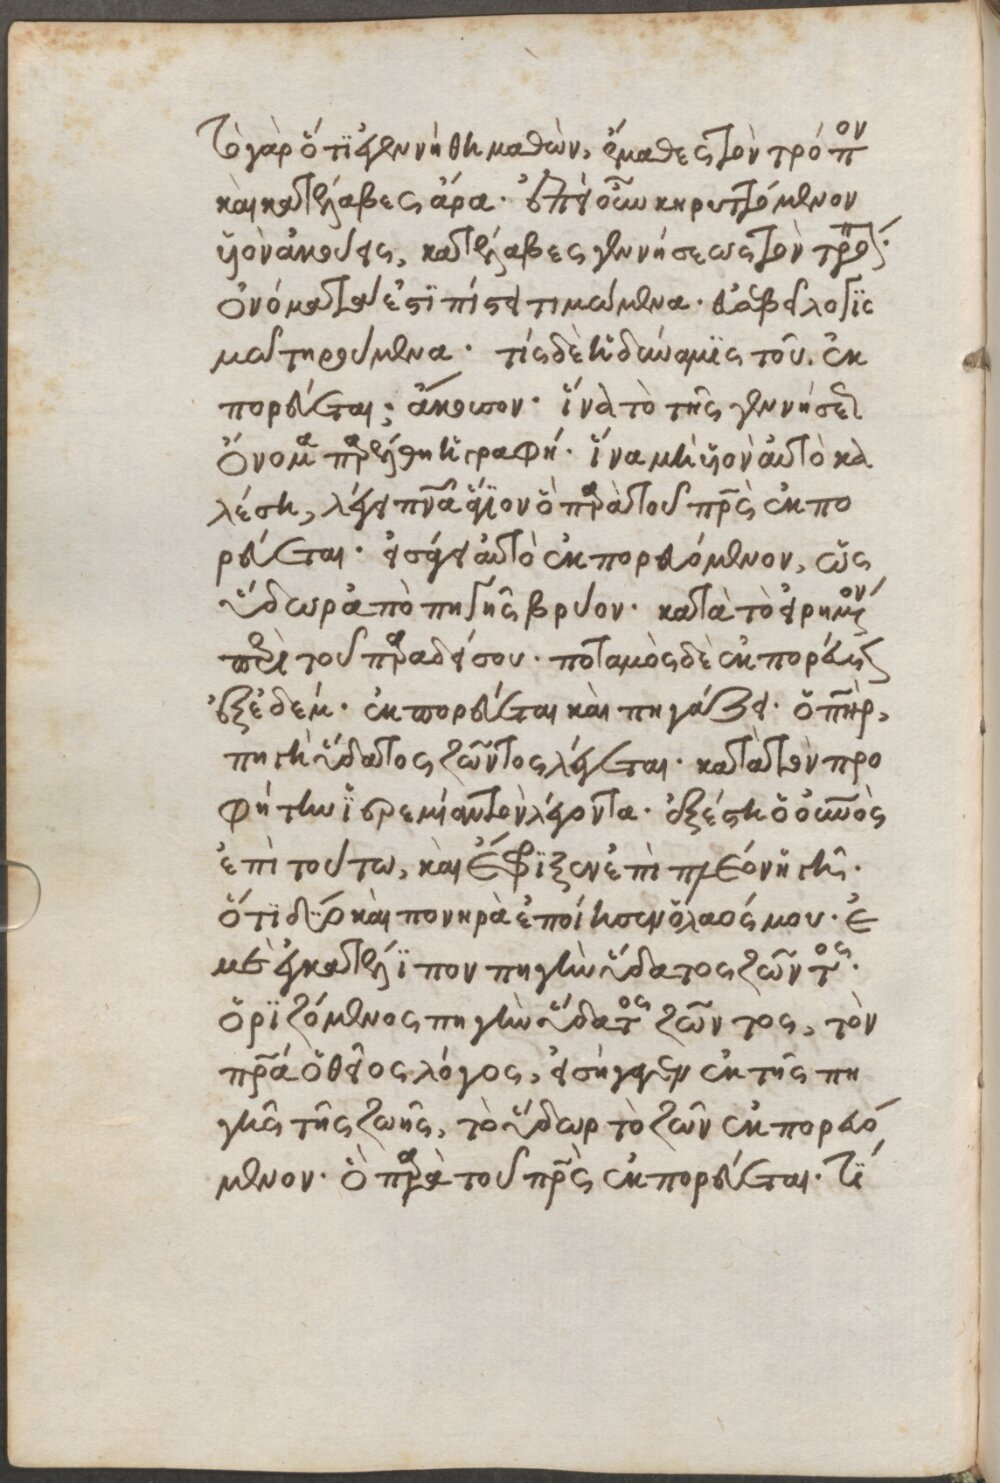 Τὸ γὰρ ὅτι ἐγεννήθη μαθὼν, ἔμαθες τὸν τρόπον
καὶ κατέλαβες ἆρα. ἐπεὶ οὖν κηρυττόμενον
υἱὸν ἀκούεις, κατέλαβες γεννήσεως τὸν τρόπον;
ὀνόματά ἐστι πίστει τιμώμενα. εὐσεβεῖ λογισ
μῷ τηρούμενα. τίς δὲ ἡ δύναμις τοῦ, ἐκ
πορεύεται; ἄκουσον. ἵνα τὸ τῆς γεννήσεως
ὄνομα παρέλθη ἡ γραφή. ἵνα μὴ υἱὸν αὐτὸ κα
λέση, λέγει πνα ἅγιον ὃ παρὰ τοῦ πρς ἐκπο
ρεύεται. εἰσάγει αὐτὸ ἐκπορευόμενον, ὡς
ὕδωρ ἀπὸ πηγῆς βρύον. κατὰ τὸ εἰρημένον
περὶ τοῦ παραδείσου. ποταμὸς δὲ ἐκπορεύεται
ἐξ ἐδέμ. ἐκπορεύεται καὶ πηγάζει. ὁ πηρ,
πηγὴ ὕδατος ζῶντος λέγεται. κατὰ τὸν προ
φήτην ἱερεμίαν τὸν λέγοντα. ἐξέστη ὁ οὐνὸς
ἐπὶ τούτω, καὶ ἔφριξεν ἐπὶ πλεῖον ἡ γῆ.
ὅτι δύο καὶ πονηρὰ ἐποίησεν ὁ λαός μου. ἐ
μὲ ἐγκατέλιπον πηγὴν ὕδατος ζῶντος.
ὁριζόμενος πηγὴν ὕδατος ζῶντος, τὸν
πρα ὁ θεῖος λόγος, εἰσήγαγεν ἐκ τῆς πη
γῆς τῆς ζωῆς, τὸ ὕδωρ τὸ ζῶν ἐκπορευό
μενον. ὃ παρὰ τοῦ πρς ἐκπορεύεται. Τί